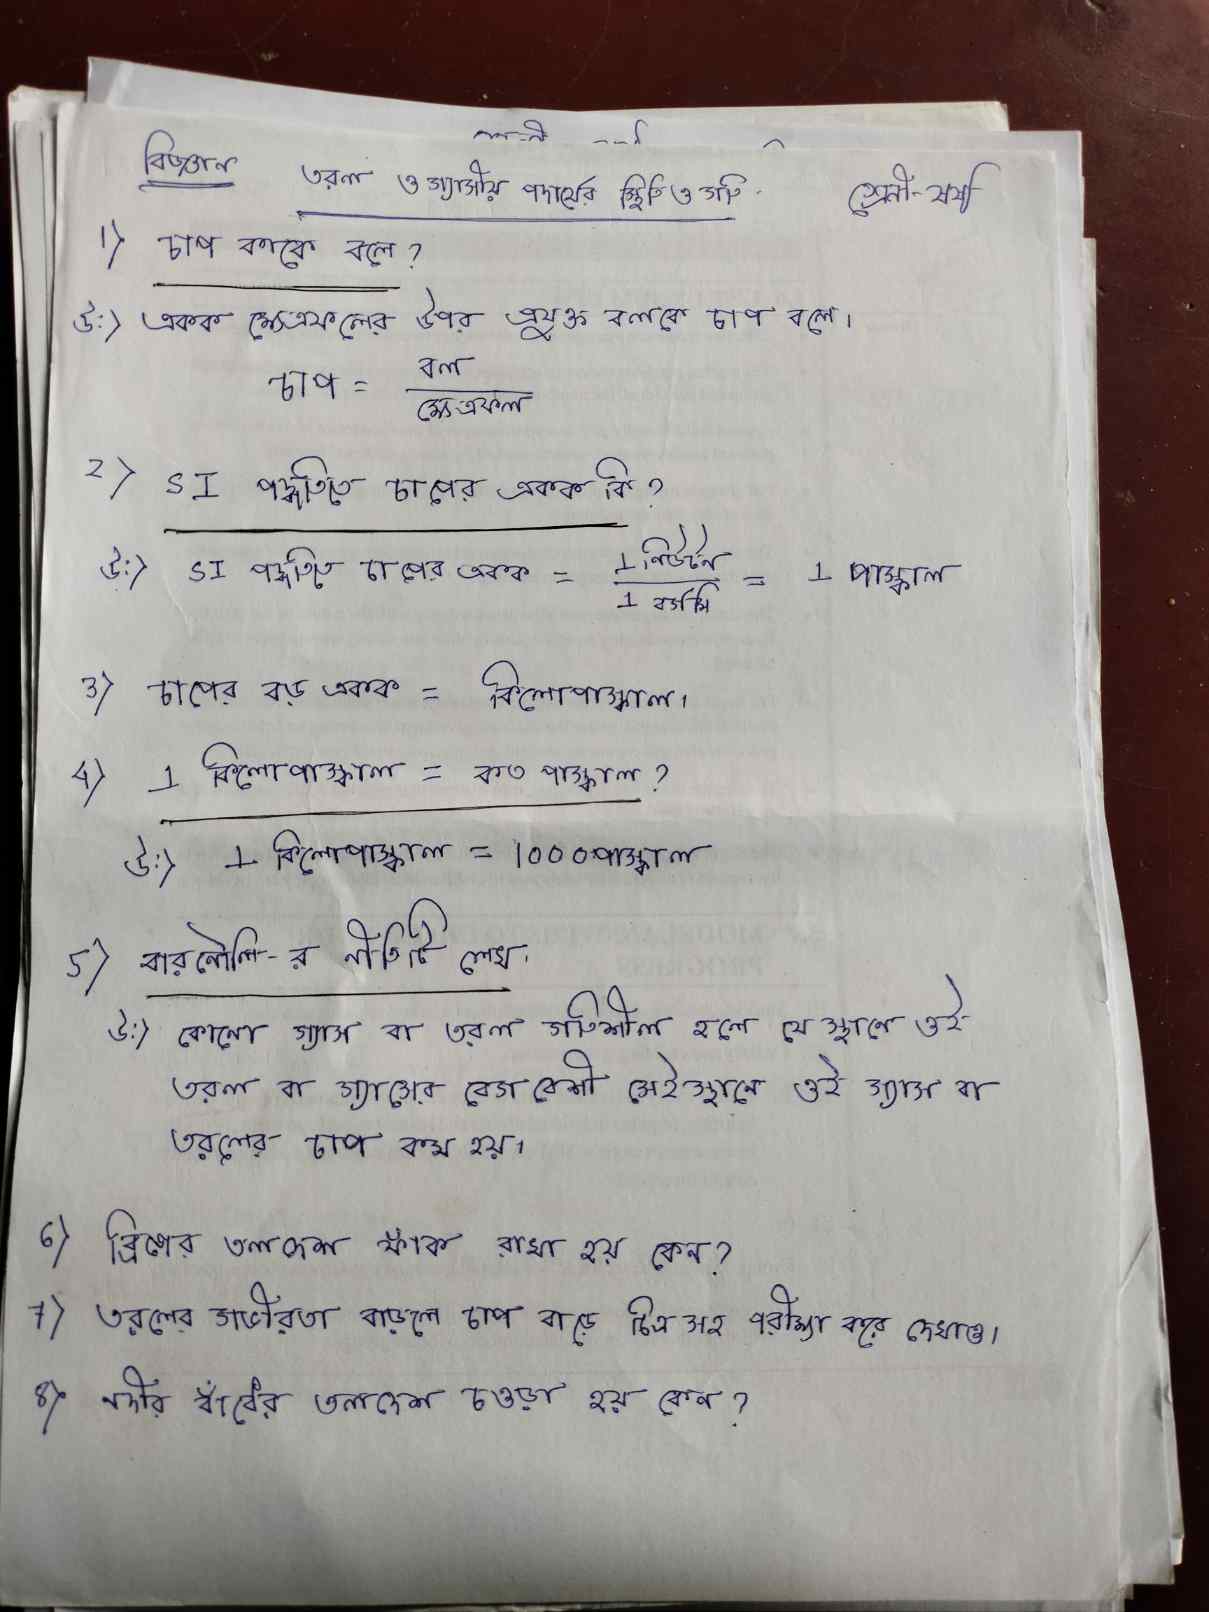 বিজ্ঞান তরল ও গ্যাসীয় পদার্থের স্থিতি ও গতি. শ্রেনী-ষষ্ঠ
1) চাপ কাকে বলে?
উ:) একক ক্ষেত্রফলের উপর প্রযুক্ত বলকে চাপ বলে।
চাপ = বল
ক্ষেত্রফল
2) SI পদ্ধতিতে চাপের একক কি?
উ:) SI পদ্ধতিতে চাপের একক = 1 নিউটন = 1 পাস্কাল
1 বর্গমি
3) চাপের বড় একক = কিলোপাস্কাল।
4) 1 কিলোপাস্কাল = কত পাস্কাল?
উ:) 1 কিলোপাস্কাল = 1000 পাস্কাল
5) বারনৌলি-র নীতিটি লেখ।
উ:) কোনো গ্যাস বা তরল গতিশীল হলে যে স্থানে ওই
তরল বা গ্যাসের বেগ বেশী সেইস্থানে ওই গ্যাস বা
তরলের চাপ কম হয়।
6) ব্রিজের তলদেশ ফাঁক রাখা হয় কেন?
7) তরলের গভীরতা বাড়লে চাপ বাড়ে চিত্র সহ পরীক্ষা করে দেখাও।
8) নদীর বাঁধের তলদেশ চওড়া হয় কেন?